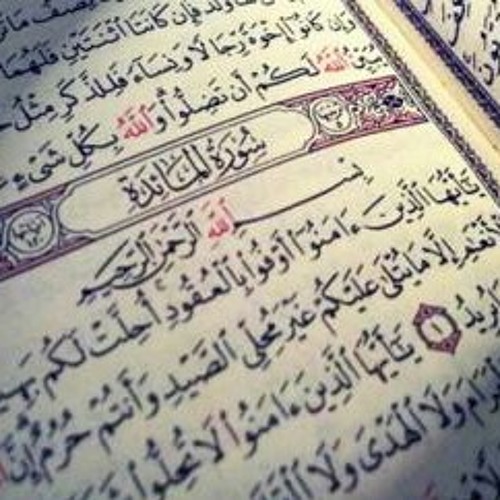 فَإِن كَانَتَا ٱثْنَتَيْنِ فَلَهُمَا
وَإِن كَانُوٓا۟ إِخْوَةً رِّجَالًا وَنِسَآءً فَلِلذَّكَرِ مِثْلُ
يُبَيِّنُ ٱللَّهُ لَكُمْ أَن تَضِلُّوا۟ وَٱللَّهُ بِكُلِّ شَىْءٍ
سُورَةُ المَائِدَةِ
بِسْمِ ٱللَّهِ ٱلرَّحْمَٰنِ ٱلرَّحِيمِ
يَٰٓأَيُّهَا ٱلَّذِينَ ءَامَنُوٓا۟ أَوْفُوا۟ بِٱلْعُقُودِ أُحِلَّتْ لَكُم
إِلَّا مَا يُتْلَىٰ عَلَيْكُمْ غَيْرَ مُحِلِّى ٱلصَّيْدِ وَأَنتُمْ حُرُمٌ إِنَّ
يُرِيدُ ١ يَٰٓأَيُّهَا ٱلَّذِينَ ءَامَنُوا۟ لَا تُحِلُّوا۟
وَلَا ٱلْهَدْىَ وَلَا